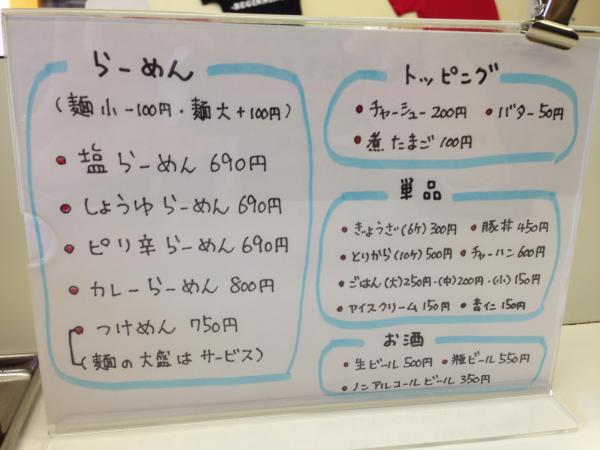 らーめん
(麺小-100円・麺大+100円)
塩らーめん 690円
しょうゆらーめん 690円
ピリ辛らーめん 690円
カレーらーめん 800円
つけめん 750円
(麺の大盛はサービス)
トッピング
チャーシュー 200円 バター 50円
煮たまご 100円
単品
ぎょうざ(6ケ) 300円 豚丼 450円
とりから(10ケ) 500円 チャーハン 600円
ごはん(大)250円・(中)200円・(小)150円
アイスクリーム 150円 杏仁 150円
お酒
生ビール 500円 瓶ビール 550円
ノンアルコールビール 350円